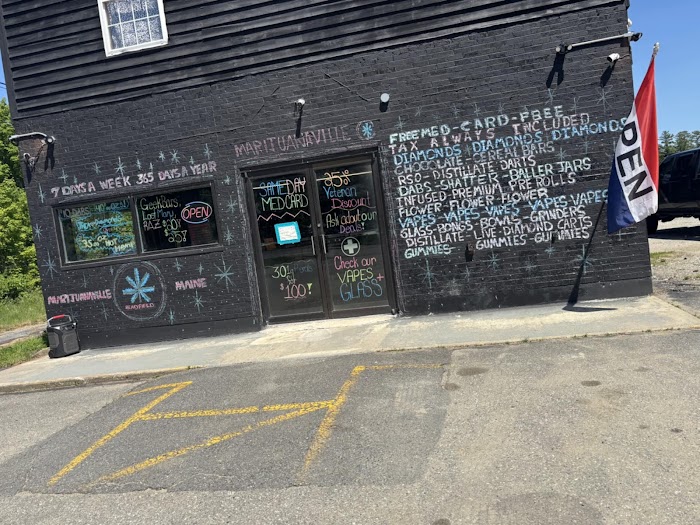 MARIJUANAVILLE
7 DAYS A WEEK 365 DAYS A YEAR
GeekBars,
Lost Mary,
RAZ $30/
$35!
OPEN
MARIJUANAVILLE
MAINE
SAME DAY
MED CARD
$100!
25%
Veteran
Discount
Ask about our
Deals!
Check our
VAPES +
GLASS
FREE-MED-CARD-FREE
TAX ALWAYS INCLUDED
DIAMONDS DIAMONDS DIAMONDS
CHOCOLATE-CEREAL BARS
RSO - DISTILLATE DARTS
DABS-SHATTER-BALLER JARS
INFUSED PREMIUM PREROLLS
FLOWER-FLOWER FLOWER
VAPES VAPES VAPES VAPES VAPES
GLASS-BONGS-BOWLS-GRINDERS
DISTILLATE LIVE DIAMOND CARTS
GUMMIES GUMMIES-GUMMIES
OPEN